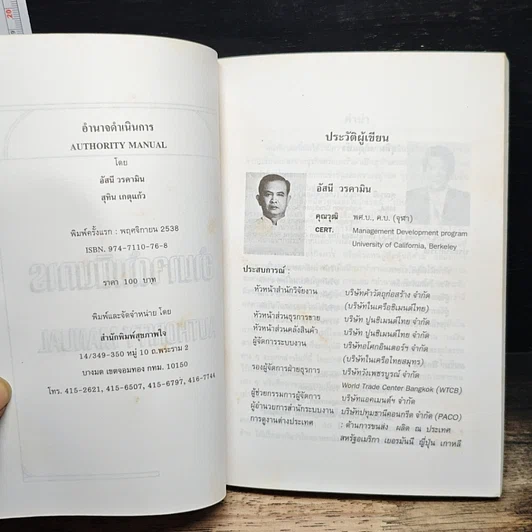 อำนาจดำเนินการ
AUTHORITY MANUAL
โดย
อัสนี วรคามิน
สุทิน เกตุแก้ว
พิมพ์ครั้งแรก : พฤศจิกายน 2538
ISBN. 974-7110-76-8
ราคา 100 บาท
พิมพ์และจัดจำหน่าย โดย
สำนักพิมพ์สุขภาพใจ
14/349-350 หมู่ 10 ถ.พระราม 2
บางมด เขตจอมทอง กทม. 10150
โทร. 415-2621, 415-6507, 415-6797, 416-7744
ประวัติผู้เขียน
อัสนี วรคามิน
คุณวุฒิ พศ.บ., ค.บ. (จุฬา)
CERT. Management Development program
University of California, Berkeley
ประสบการณ์ :
หัวหน้าสำนักวิจัยงาน บริษัทค้าวัตถุก่อสร้าง จำกัด
(บริษัทในเครือซิเมนต์ไทย)
หัวหน้าส่วนธุรการขาย บริษัท ปูนซิเมนต์ไทย จำกัด
หัวหน้าส่วนคลังสินค้า บริษัท ปูนซิเมนต์ไทย จำกัด
ผู้จัดการระบบงาน บริษัทอโศกอินเตอร์ฯ จำกัด
(บริษัทในเครือไทยสมุทร)
รองผู้จัดการฝ่ายธุรการ บริษัทวังเพชรบูรณ์ จำกัด
World Trade Center Bangkok (WTCB)
ผู้ช่วยกรรมการผู้จัดการ บริษัทแอคเมนต์ฯ จำกัด
ผู้อำนวยการสำนักระบบงาน บริษัทปทุมธานีคอนกรีต จำกัด (PACO)
การดูงานต่างประเทศ : ด้านการขนส่ง ผลิต ณ ประเทศ
สหรัฐอเมริกา เยอรมันนี ญี่ปุ่น เกาหลี